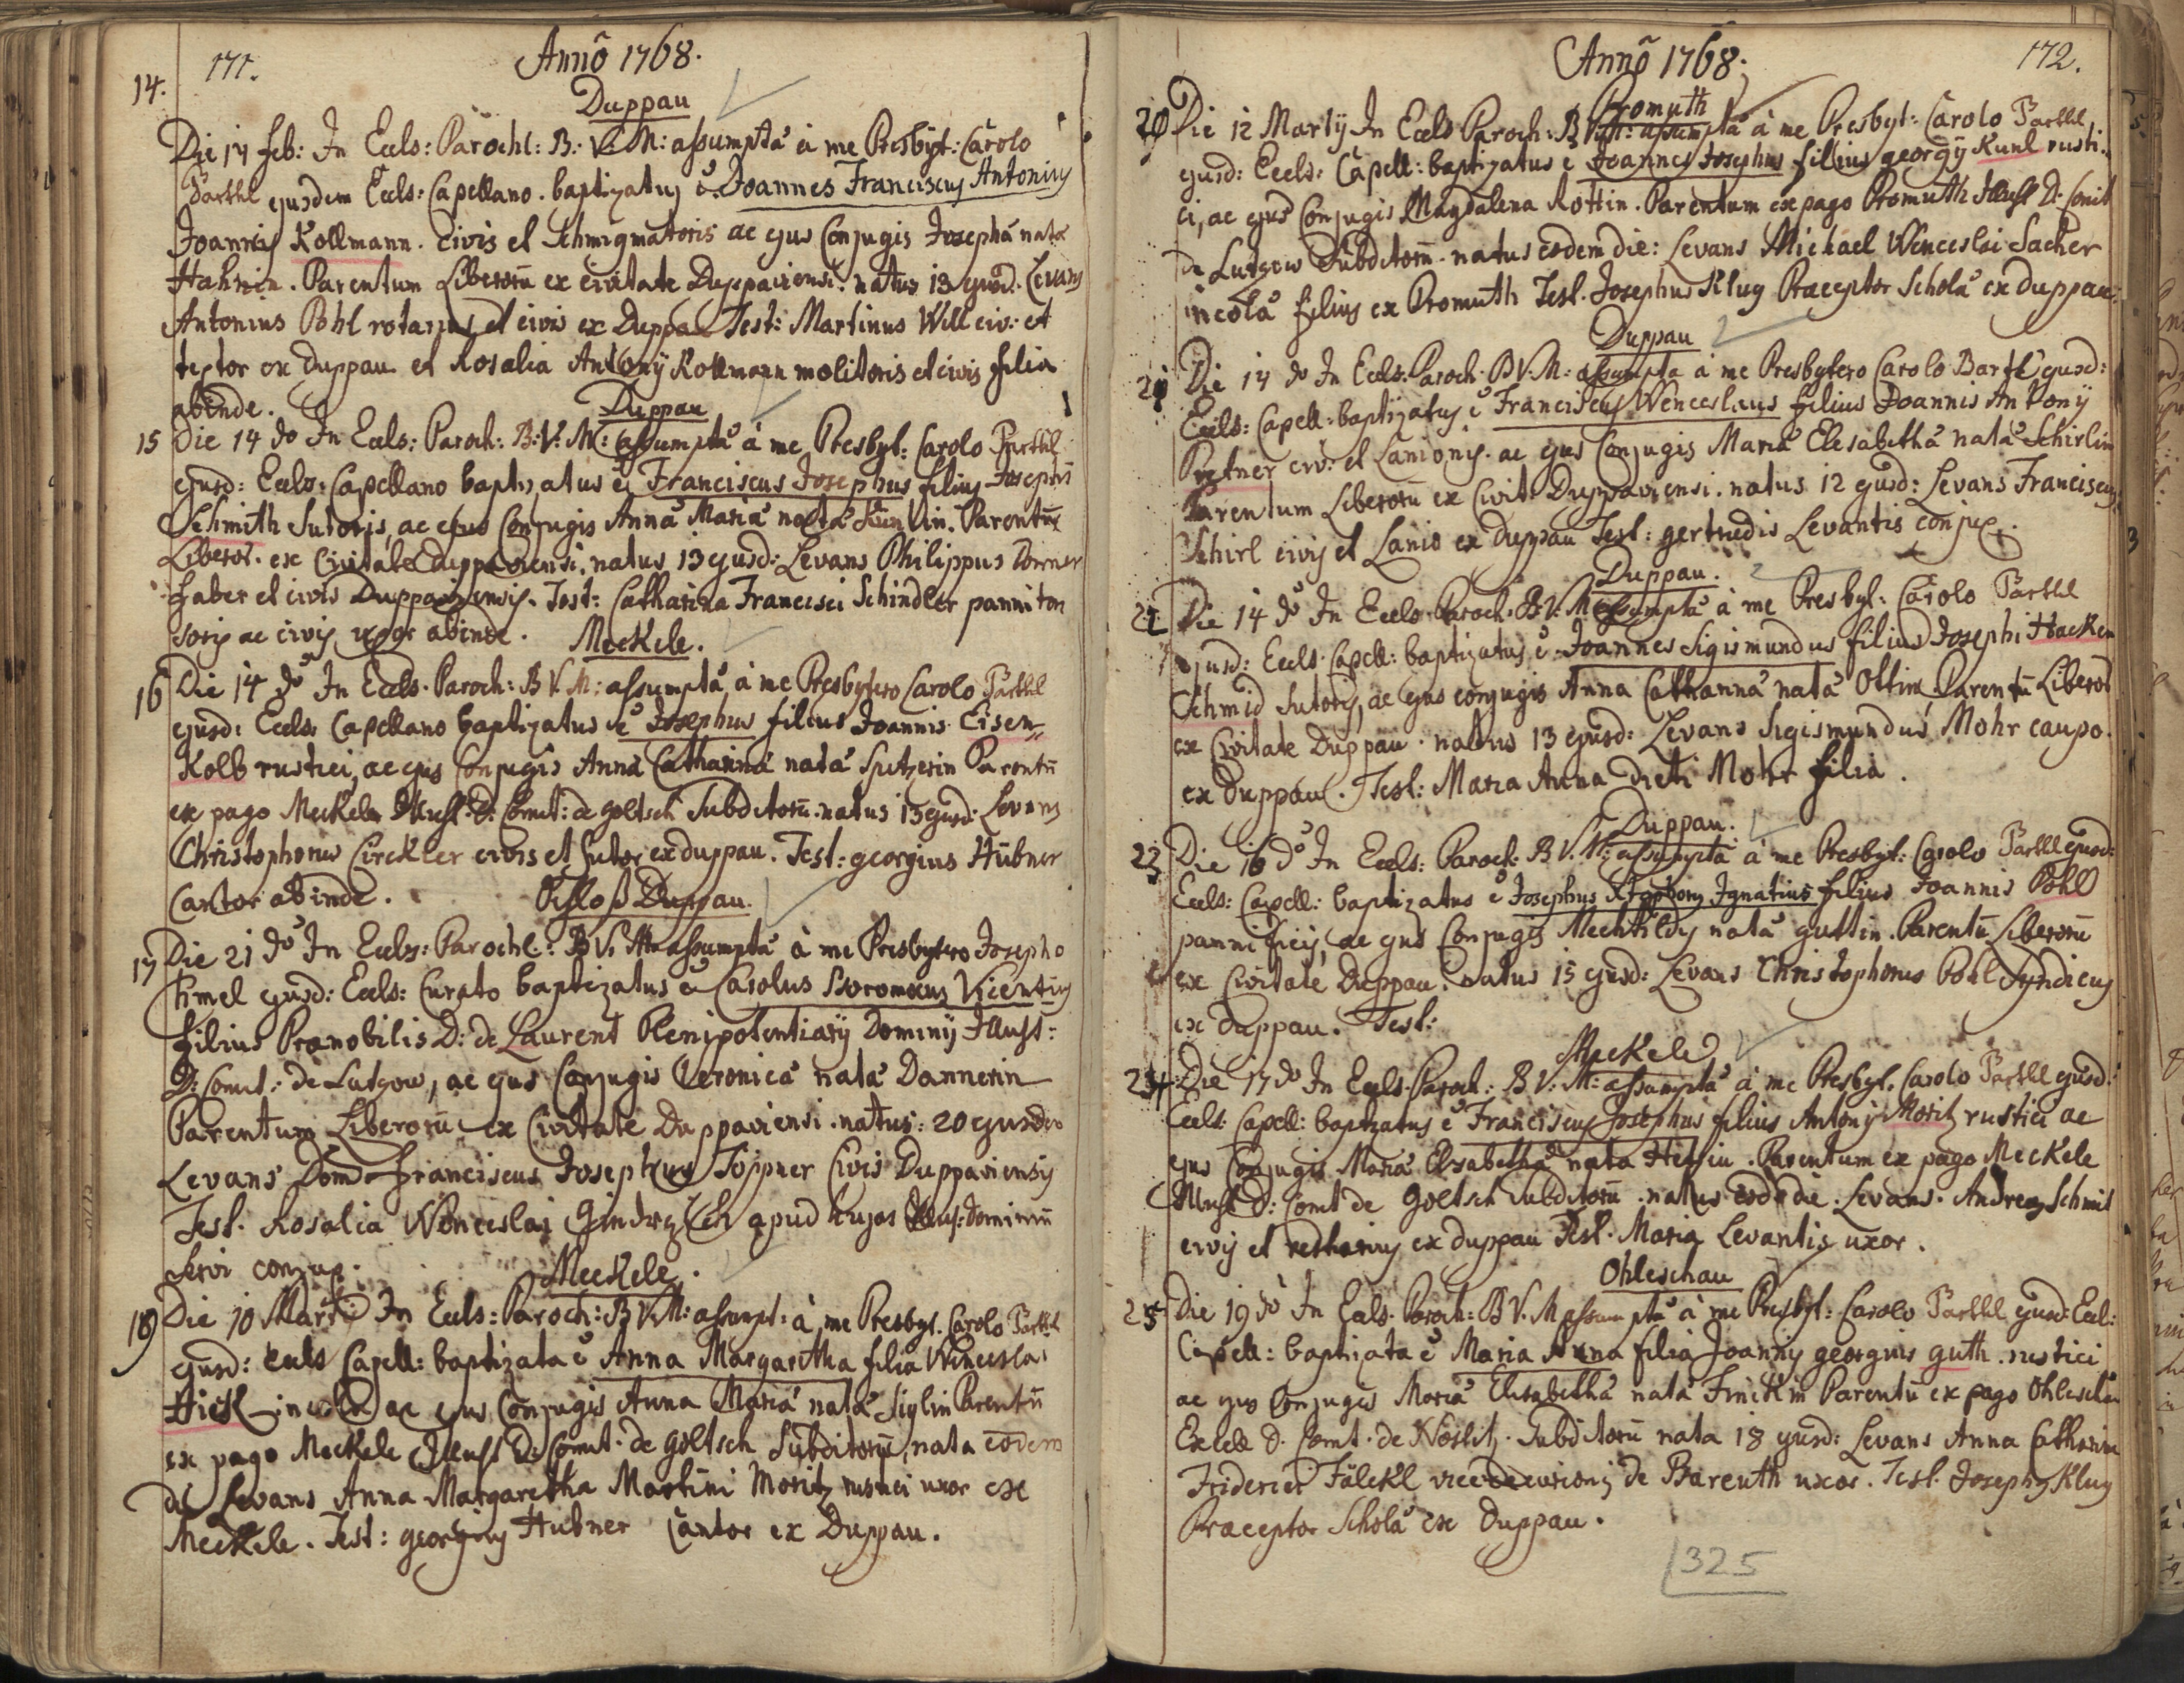 171.
Anno 1768.
14.
Duppau
Die 14 feb: In Eccls: Parochl: B: V: M: assumptâ à me Presbyt: Carolo
Parthl ejusdem Eccls: Capellano. baptizatus è Joannes Franciscus Antonius
Joannis Kollmann. civis et Schmigmatoris ac ejus Conjugis Josephâ natâ
Hahnin. Parentum Liberorū ex civitate Duppaviensi: natus 13 ejusd: Levans
Antonius Pohl rotarius et civis ex Duppau Test: Martinus Will civ: et
textor ex duppau et Rosalia Antonÿ Kollmann molitoris et civis filia
abinde.
Duppau
15 Die 14 do In Eccls: Paroch: B:V:M: assumptâ à me Presbyt: Carolo Parthl
ejusd: Eccls: Capellano baptizatus è Franciscus Josephus filius Josephi
Schmith Sutoris, ac ejus Conjugis Annâ Mariâ natâ Parentū
Liberor. ex Civitate duppaviensi, natus 13 ejusd: Levans Philippus Dorner
faber et civis Duppaviensis. Test: Catharina Francisci Schindler panniton
soris ac civis uxor abinde.
Meckele.
16 Die 14 do In Eccls. Paroch: B V. M: assumptâ, à me Presbytero Carolo Parthl
ejusd: Eccls: Capellano baptizatus è Josephus filius Joannis Eisen„
Kolb rustici, ac ejus Conjugis Annâ Catharinâ natâ Spitzerin Parentū
ex pago Meckele Illust: D: Comit: de goltsch Subditorū. natus 13 ejusd: Levans
Christophorus Circkler civis et sutor ex duppau. Test: georgius Hübner
Cantor abinde.
Schloß Duppau.
17 Die 21 do In Eccls: Parochl: B V. M assumptâ à me Presbytero Josepho
Himel ejusd: Eccls: Curato baptizatus è Carolus Boromoeus Vicentius
filius Prænobilis D: de Laurent Plenipotentiarÿ Dominÿ Illust:
D: Comit: de Lutzow, ac ejus Conjugis Veronicâ natâ Dannerin
Parentum Liberorū ex Civitate Duppaviensi. natus: 20 ejusdem
Levans Dom: Franciscus Josephus Töppner Civis Duppaviensis
Test. Rosalia Wenceslai apud hujas Illust: Dominiū
servi conjux.
Meckele.
18 Die 10 Marti In Eccls: Paroch: B V. M: assumpt: à me Presbyt. Carolo Parthl
ejusd: Eccls Capell: baptizata è Anna Margaretha filia Winceslai
incolæ ac ejus Conjugis Anna Mariâ natâ Siglin Parentū
ex pago Meckele Illust D: Comit. de goltsch Subditorū, nata eodem
die Levans Anna Margaretha Martini Moritz rustici uxor ex
Meckele. Test: georgius Hubner Cantor ex Duppau.
Anno 1768.
172.
Promuth
20 Die 12 Martÿ In Eccls Paroch: B V: M: assumptâ à me Presbyt: Carolo Parthl
ejusd: Eccls: Capell: baptizatus è Joannes Josephus filius georgÿ Kunl rusti:
ci, ac ejus Conjugis Magdalena Rottin. Parentum ex pago Promuth Illust D: Comit
de Lutzow Subditorū. natus eodem die: Levans Michael Wenceslai Sacher
incolâ filius ex Promuth Test. Josephus Klug Præceptor Scholâ ex duppau:
Duppau
Die 14 do In Eccls: Paroch. B V: M: assumpta à me Presbytero Carolo Barthl ejusd:
Eccls: Capell: baptizatus è Franciscus Wenceslaus filius Joannis Antony
Pretner civ: et Lanionis. ac ejus Conjugis Mariâ Elesabethâ natâ Schirlin
Parentum Liberorū ex Civit: Duppaviensi. natus 12 ejusd: Levans Franciscus
Schirl civis et Lanio ex Duppau Test: gertrudis Levantis conjux.
Duppau.
Die 14 do In Eccls. Paroch. B V. M assumptâ à me Presbyt: Carolo Parthl
ejusd: Eccls. Capell: baptizatus è Joannes Sigismundus filius Josephi Hacken
Schmid Sutoris, ac ejus conjugis Anna Catharinâ natâ Ottin Parentū Liberor
ex Civitate Duppau. natus 13 ejusd: Levans Sigismundus Mohr caupo.
ex Duppau. Test: Maria Anna dicti Mohr filia.
Duppau.
23 Die 16 do In Eccls: Paroch: B V. M: assumptâ à me Presbyt: Carolo Parthl ejusd:
Eccls: Capell: baptizatus è Josephus Ignatius filius Joannis Pohl
pannificis, ac ejus Conjugis Mechtildis natâ guttin. Parentū Liberorū
ex Civitate Duppau. natus 15 ejusd: Levans Christophorus Pohl Syndicus
ex duppau. Test:
Meckele
24 Die 17 do In Eccls. Paroch: B V. M: assumptâ à me Presbyt. Carolo Parthl ejusd:
Eccls. Capell: baptizatus è Franciscus Josephus filius Antonÿ Moritz rustici ac
ejus Conjugis Mariâ Elisabethâ nata Parentum ex pago Meckele
Illust D: Comit de Goltsch Subditorū. natus eod: die. Levans. Andreas Schmit
civis et ex duppau Test. Maria Levantis uxor.
Ohleschau
25 Die 19 do In Eccls. Paroch: B V. M assumptâ à me Presbyt: Carolo Parthl ejusd: Eccl:
Capell: baptizata è Maria Anna filia Joannis georgius guth. rustici
ac ejus Conjugis Mariâ Elisabethâ natâ Finckin Parentū ex pago Ohleschau
Excell D. Comit. de Nostitz. Subditorū nata 18 ejusd: Levans Anna Catharina
Friderici Fälckl de Bareuth uxor. Test. Josephus Klug
Præceptor Scholâ ex Duppau.
325